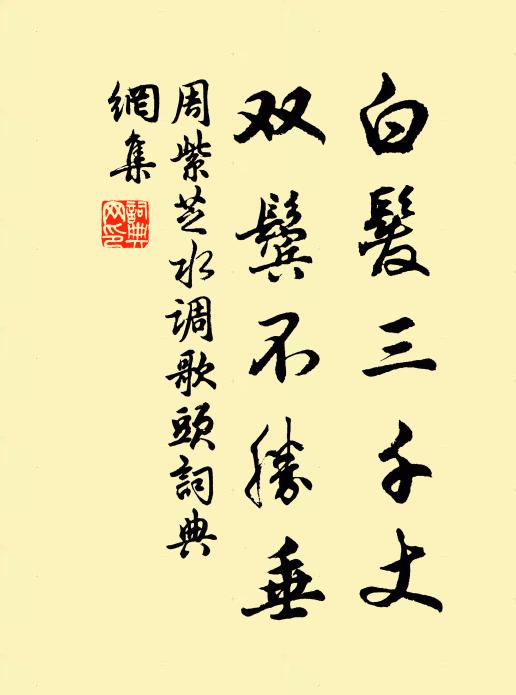 白髮三千丈
双鬢不勝垂
周紫芝水调歌頭詞典
網集
詞典
网印